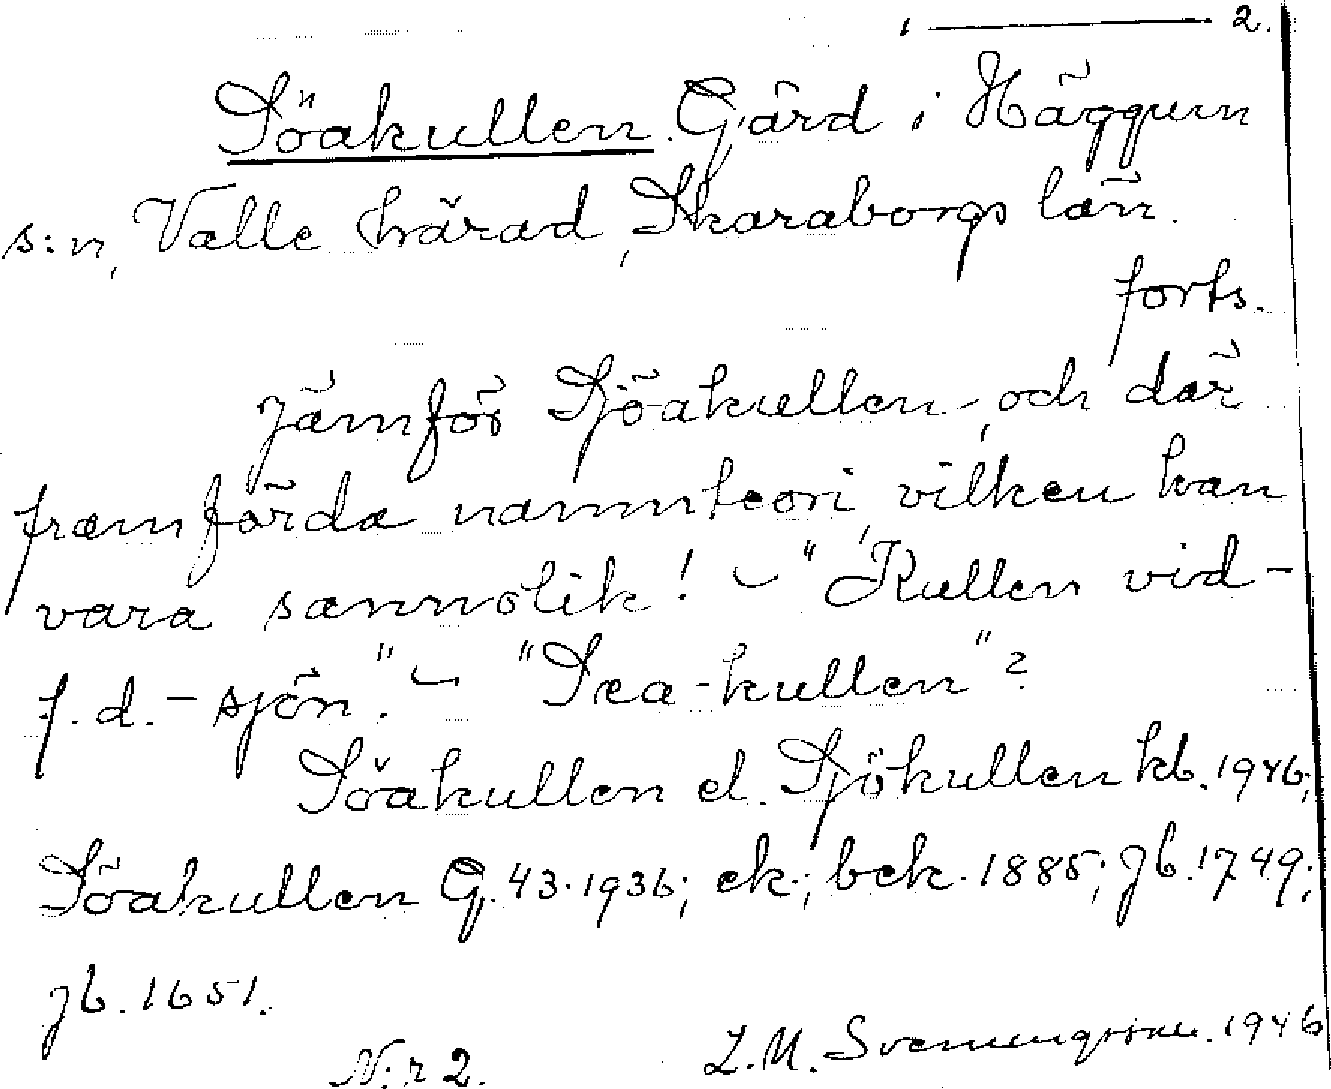 1 ——— 2.
Söakullen. Gård i Häggum
s:n, Valle härad, Skaraborgs län.
forts.
Jämför Sjöakullen, och där
framförda namnteori, vilken kan
vara sannolik! – "Kullen vid –
f.d. – sjön". – "Sea-kullen"?
Söakullen el. Sjökullen kb. 1946;
Söakullen G. 43. 1936; ek.; bek. 1885; jb. 1749;
jb. 1651.
N:r 2. 1946